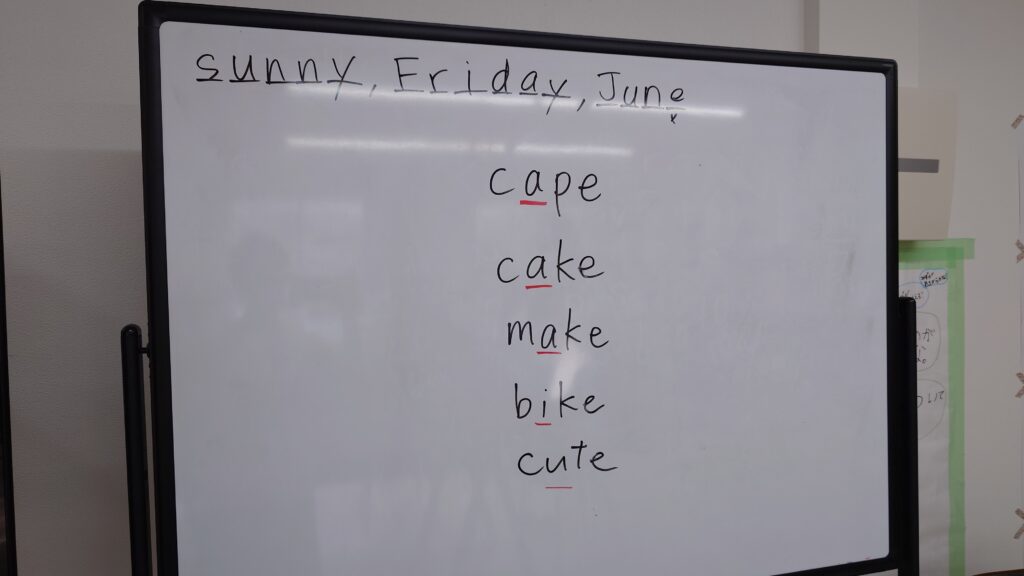 sunny, Friday, June
x
cape
cake
make
bike
cute